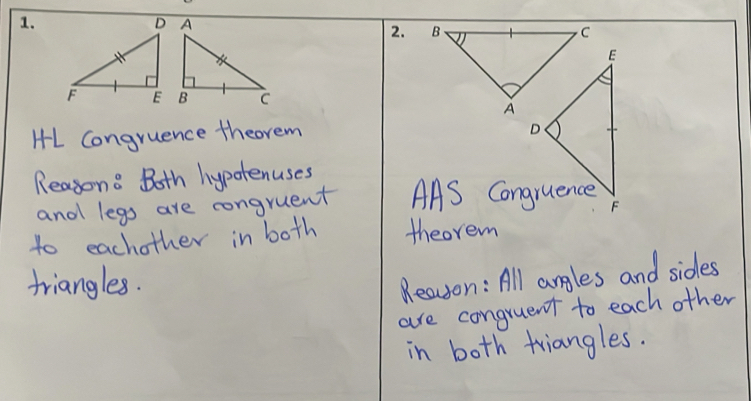 1.
D A
F E B C
HL Congruence theorem
Reason: Both hypotenuses
and legs are congruent
to eachother in both
triangles.
2.
B C
A
E
D
F
AAS Congruence
theorem
Reason: All angles and sides
are congruent to each other
in both triangles.